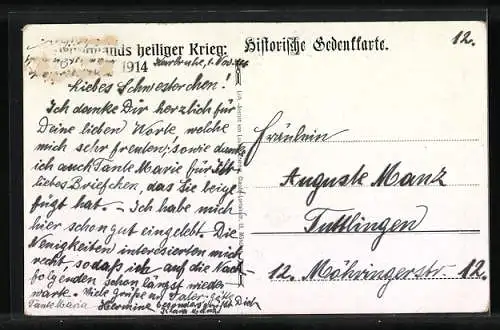 Deutschlands heiliger Krieg:
Historische Gedenkkarte.
12.
1914
Karlsruhe, 1. Nov.
Liebes Schwesterchen!
Ich danke Dir herzlich für
Deine lieben Worte, welche
mich sehr freuten; sowie danke
ich auch Tante Marie für Ihr
liebes Briefchen, das Sie beige
fügt hat. – Ich habe mich
hier schon gut eingelebt. Die
Neuigkeiten interessierten mich
recht, sodaß ich auf die Nach
folgenden schon längst wieder
warte. Viele Grüße an Vater,
Tante Maria Hermine besonders
Fräulein
Auguste Manz
Tuttlingen
12. Möhringerstr. 12.